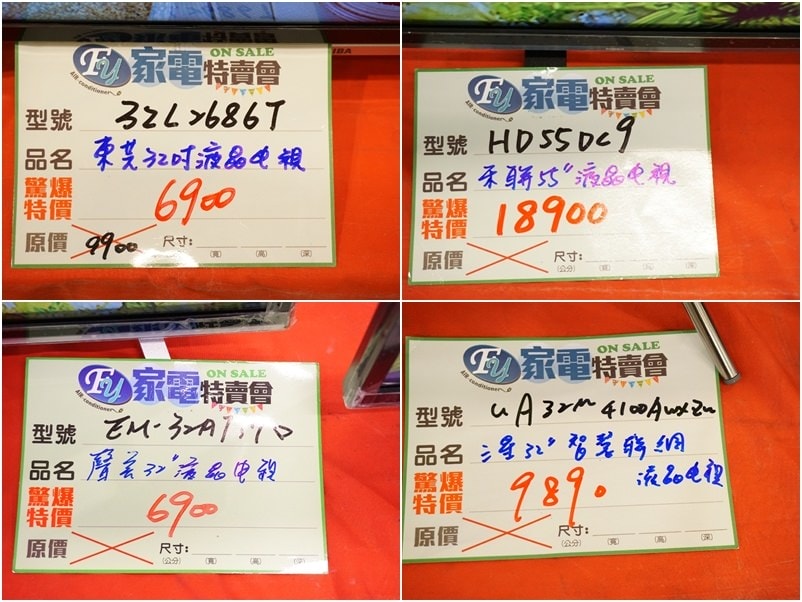 FY 家電特賣會 ON SALE
Air conditioner
型號 32L2686T
品名 東芝32吋液晶电視
驚爆特價 6900
原價 9900 尺寸:
(寬) (高) (深)
IBA
FY 家電特賣會 ON SALE
Air conditioner
型號 HD55DC9
品名 禾聯55"液晶电視
驚爆特價 18900
原價 尺寸:
(公分) (寬) (高) (深)
FY 家電特賣會 ON SALE
Air conditioner
型號
品名 聲寶32"液晶电視
驚爆特價 6900
原價 尺寸:
(公分) (寬) (高) (深)
FY 家電特賣會 ON SALE
Air conditioner
型號 UA32M4100AWXZW
品名 三星32"智慧聯網
液晶电視
驚爆特價 9890
原價 尺寸:
(公分) (寬) (高) (深)